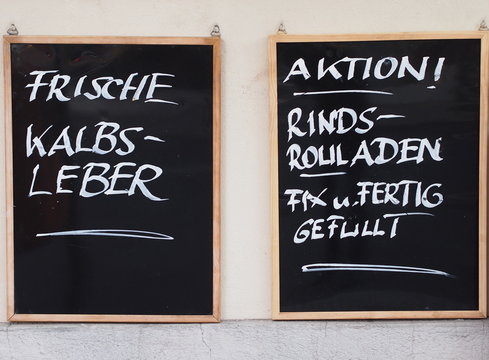 FRISCHE
KALBS-
LEBER
AKTION!
RINDS-
ROULADEN
FIX u. FERTIG
GEFÜLLT